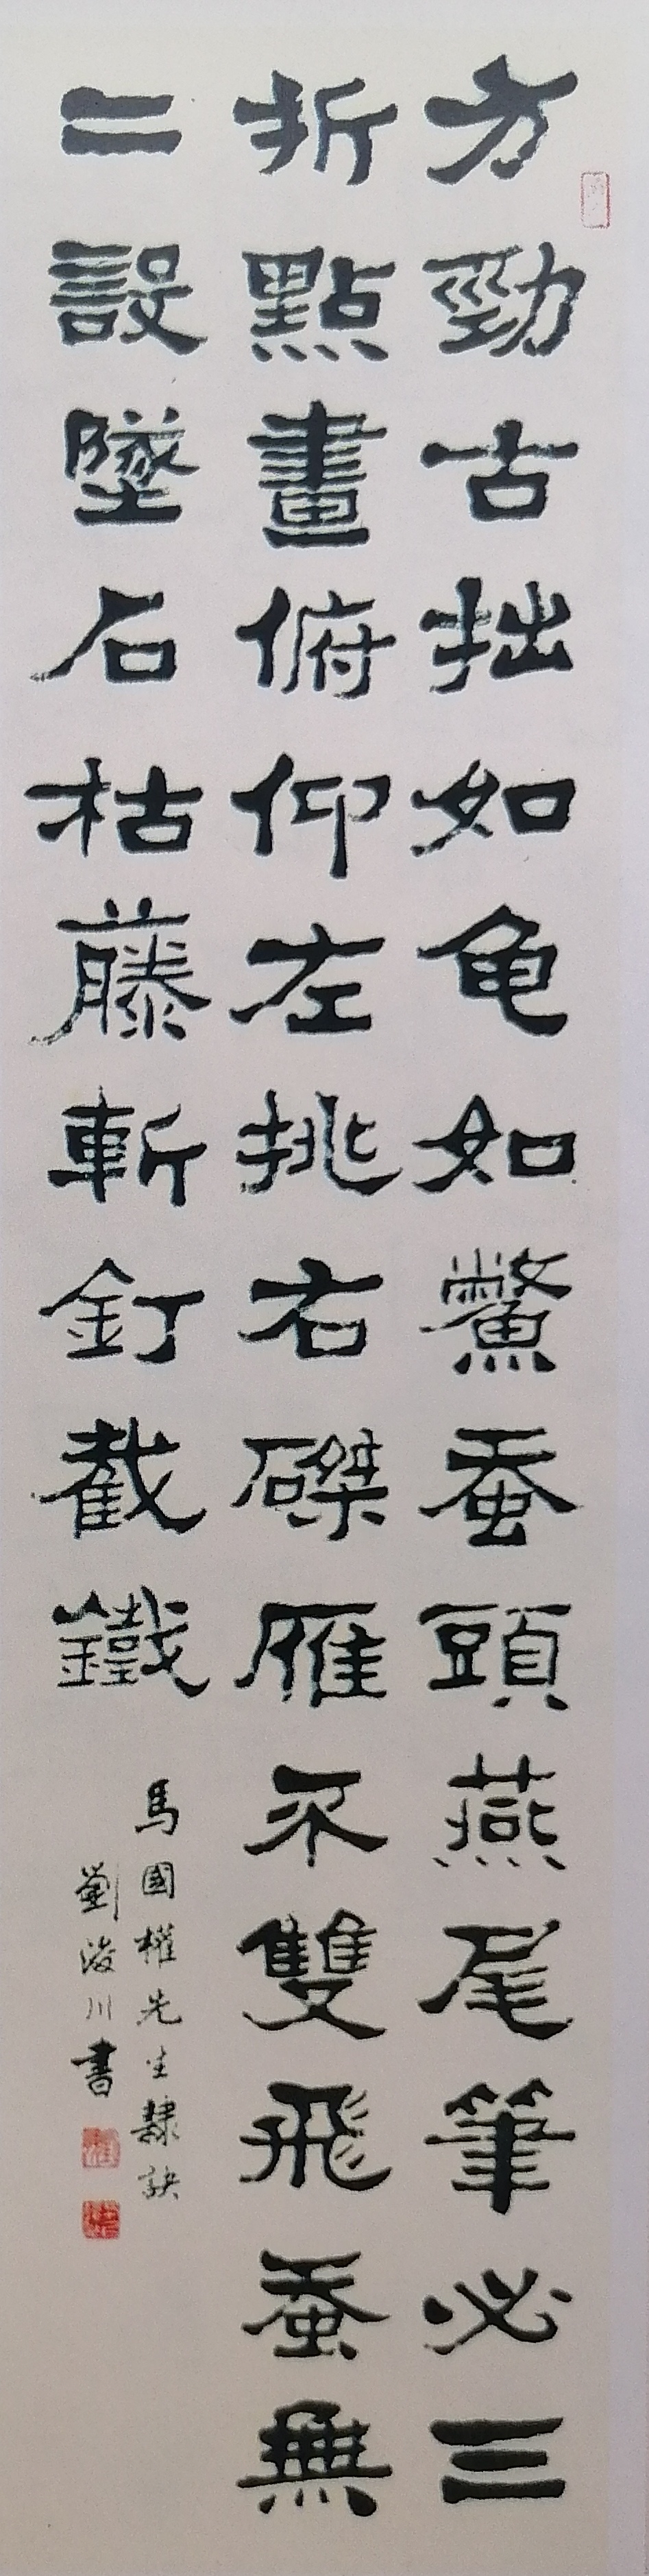 方勁古拙如龟如鱉蚕頭燕尾筆必三
折點畫俯仰左挑右磔雁不雙飛蚕無
二設墜石枯藤斬釘截鐵
馬國權先生隸訣
劉浚川書